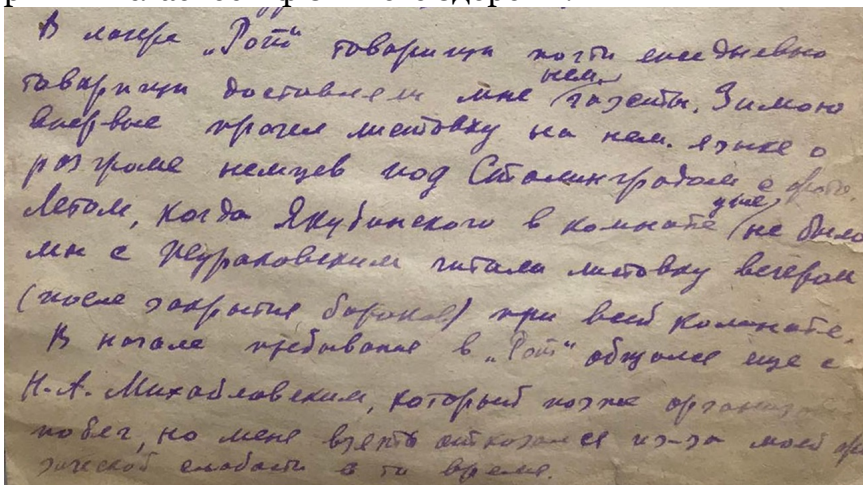 В лагере „Рот“ товарищи почти ежедневно
товарищи доставляли мне нем. газеты. Зимою
впервые прочел листовку на нем. языке о
разгроме немцев под Сталинградом с фото.
Летом, когда Якубинского в комнате уже не было
мы с Жураковским читали листовку вечером
(после закрытия бараков) при всей комнате.
В начале пребывания в „Рот“ общался еще с
Н.А. Михайловским, который позже организо
побег, но меня взять отказался из-за моей фи
зической слабости в то время.